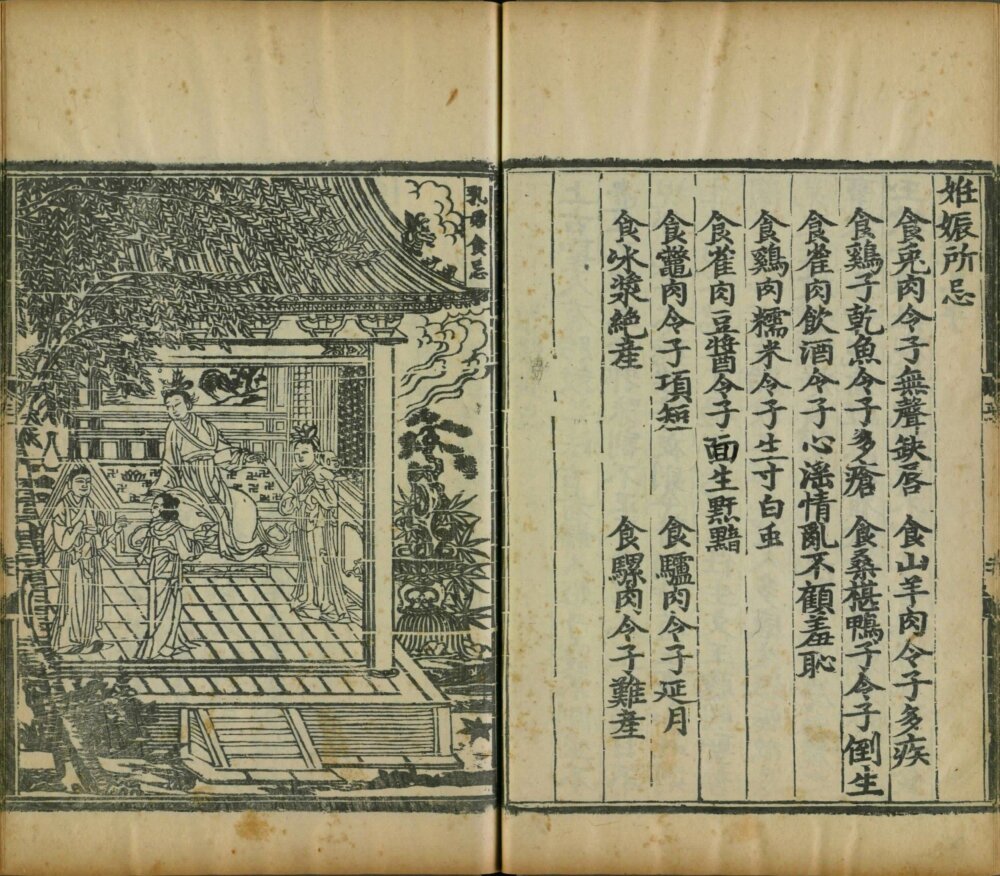 妊娠所忌
食兎肉令子無聲缺唇 食山羊肉令子多疾
食鷄子乾魚令子多瘡 食桑椹鴨子令子倒生
食雀肉飲酒令子心滛情亂不顧羞恥
食鷄肉糯米令子生寸白䖝
食雀肉豆醬令子面生䵟黯
食鼈肉令子項短 食驢肉令子延月
食氷漿絶産 食騾肉令子難産
乳母食忌